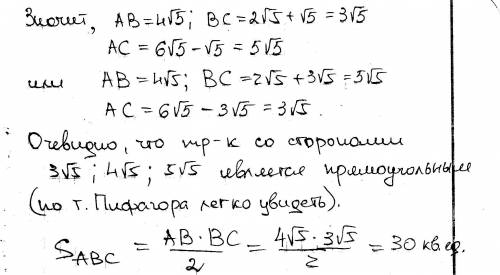 Значит, AB=4√5; BC=2√5+√5=3√5
AC=6√5-√5=5√5
или AB=4√5; BC=2√5+3√5=5√5
AC=6√5-3√5=3√5.
Очевидно, что тр-к со сторонами
3√5; 4√5; 5√5 является прямоугольным
(по т. Пифагора легко увидеть).
S_ABC = AB·BC/2 = 4√5·3√5/2 = 30 кв.ед.